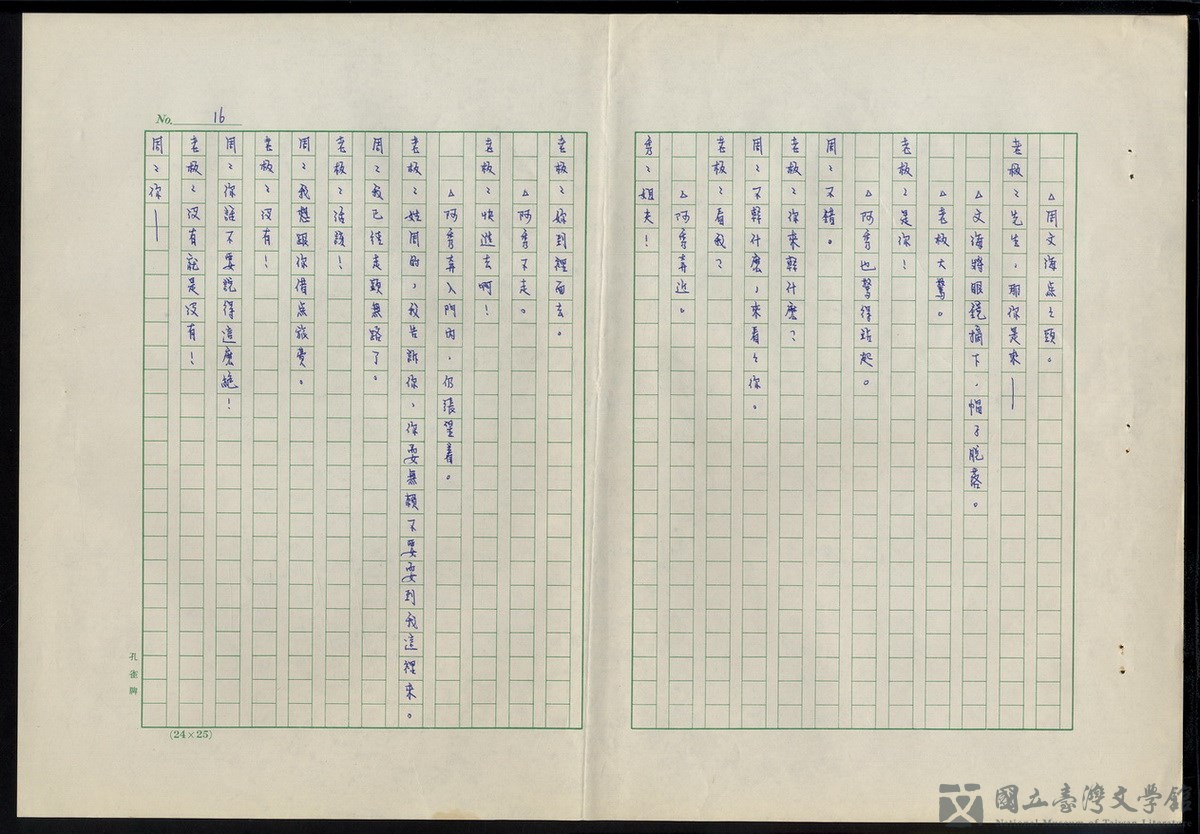 △周文海点々頭。
老板：先生，那你是來——
△文海將眼鏡摘下，帽子脫落。
△老板大驚。
老板：是你！
△阿秀也驚得站起。
周：不錯。
老板：你來幹什麼？
周：不幹什麼，來看々你。
老板：看我？
△阿秀弄近。
秀：姐夫！
老板：妳到裡面去。
△阿秀不走。
老板：快進去啊！
△阿秀弄入門內，仍張望着。
老板：姓周的，我告訴你，你耍無賴不要耍到我這裡來。
周：我已經走頭無路了。
老板：活該！
周：我想跟你借点旅費。
老板：沒有！
周：你話不要說得這麼絕！
老板：沒有就是沒有！
周：你——
No. 16
孔雀牌
(24×25)
國立臺灣文學館
National Museum of Taiwan Literature